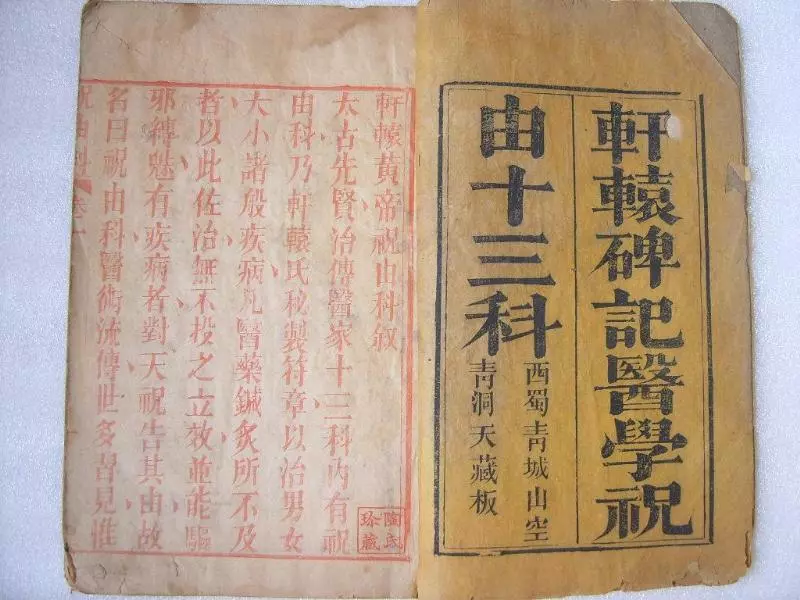 軒轅碑記醫學祝
由十三科
西蜀青城山空
青洞天藏板
軒轅黃帝祝由科敘
太古先賢治傳醫家十三科內有祝
由科乃軒轅氏秘製符章以治男女
大小諸般疾病凡醫藥鍼炙所不及
者以此佐治無不投之立效並能驅
邪縛魅有疾病者對天祝告其由故
名曰祝由科醫術流傳世多罟見惟
祝由科
卷一
陶氏
珍藏